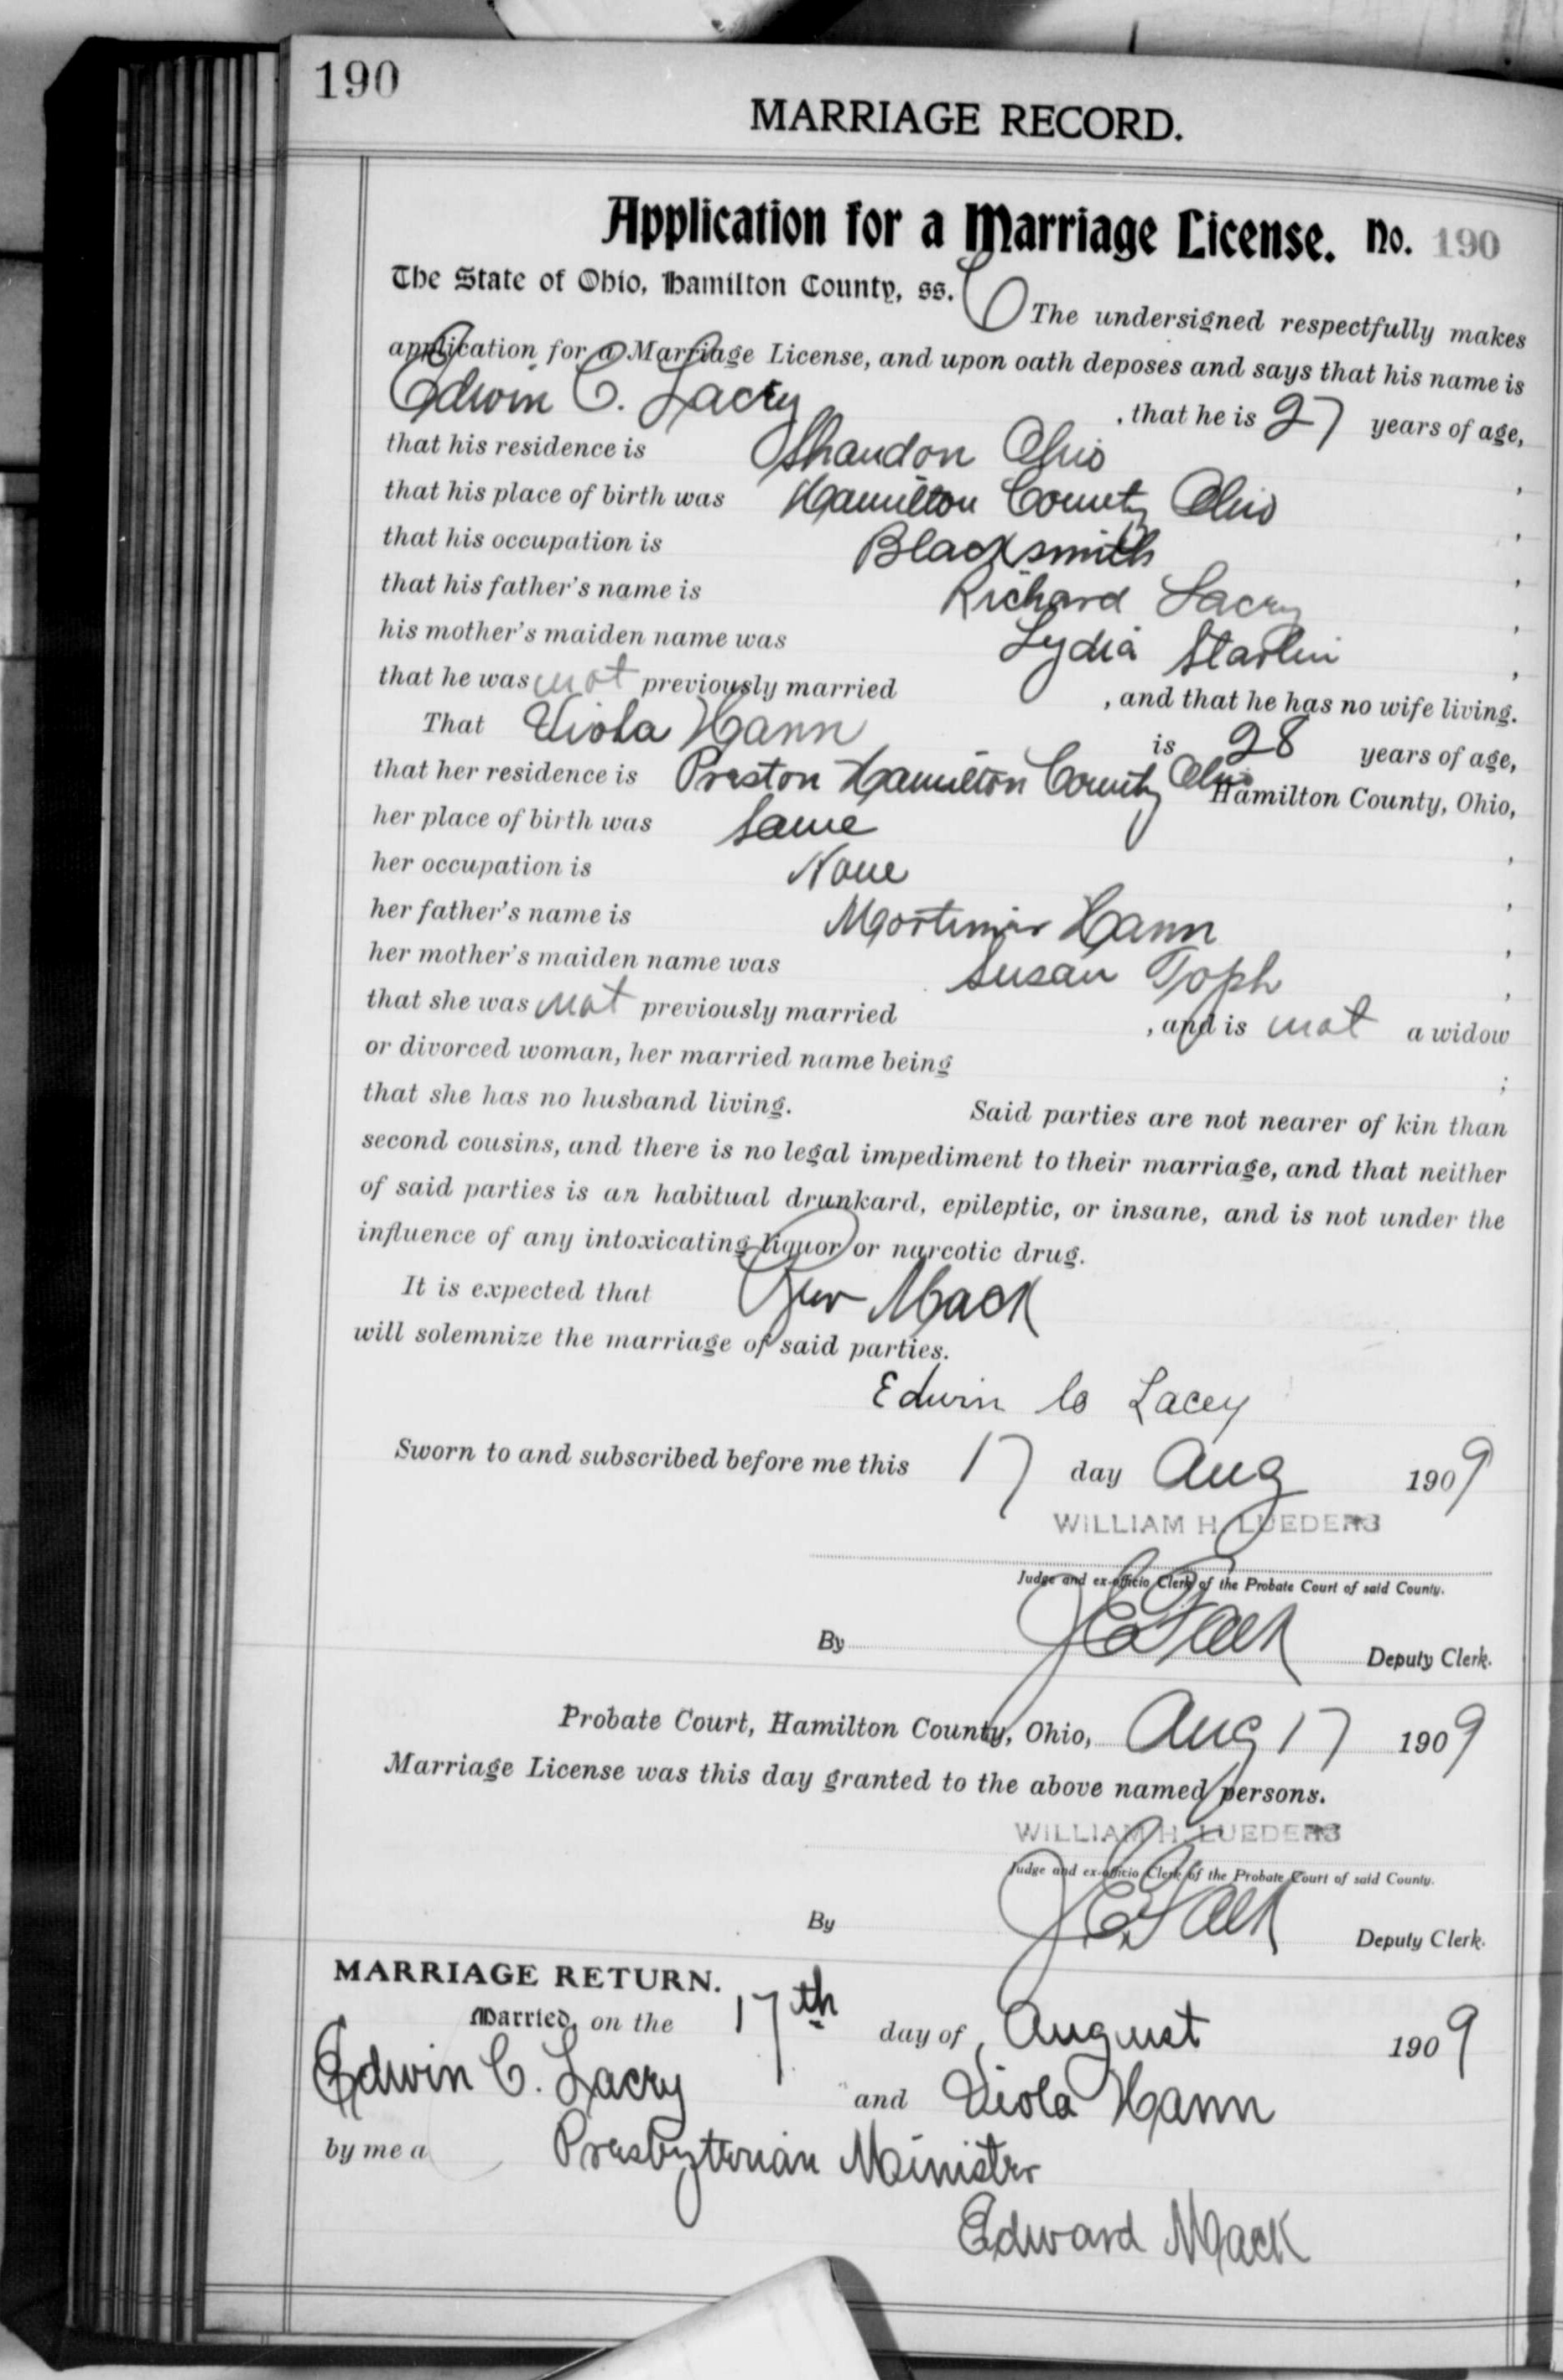 190
MARRIAGE RECORD.
Application for a Marriage License. No. 190
The State of Ohio, Hamilton County, ss.
The undersigned respectfully makes
application for a Marriage License, and upon oath deposes and says that his name is
Edwin C. Lacey , that he is 27 years of age,
that his residence is Shandon Ohio ,
that his place of birth was Hamilton County Ohio ,
that his occupation is Blacksmith ,
that his father's name is Richard Lacey ,
his mother's maiden name was Lydia ,
that he was not previously married , and that he has no wife living.
That Viola Hann is 28 years of age,
that her residence is Preston Hamilton County Ohio Hamilton County, Ohio,
her place of birth was Same ,
her occupation is None ,
her father's name is Mortimir Hann ,
her mother's maiden name was Susan Toph ,
that she was not previously married , and is not a widow
or divorced woman, her married name being ;
that she has no husband living. Said parties are not nearer of kin than
second cousins, and there is no legal impediment to their marriage, and that neither
of said parties is an habitual drunkard, epileptic, or insane, and is not under the
influence of any intoxicating liquor or narcotic drug.
It is expected that Rev Mack
will solemnize the marriage of said parties.
Edwin C Lacey
Sworn to and subscribed before me this 17 day Aug 1909
WILLIAM H. LUEDERS
Judge and ex-officio Clerk of the Probate Court of said County.
By Deputy Clerk.
Probate Court, Hamilton County, Ohio, Aug 17 1909
Marriage License was this day granted to the above named persons.
WILLIAM H. LUEDERS
Judge and ex-officio Clerk of the Probate Court of said County.
By Deputy Clerk.
MARRIAGE RETURN.
Married, on the 17th day of August 1909
Edwin C. Lacey and Viola Hann
by me a Presbyterian Minister
Edward Mack